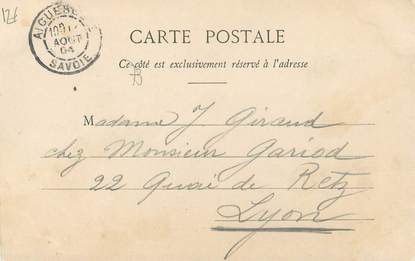 12f
AIGUEB
AOUT
04
SAVOIE
CARTE POSTALE
Ce côté est exclusivement réservé à l'adresse
B
Madame J Giraud
chez Monsieur Gariod
22 Quai de Retz
Lyon